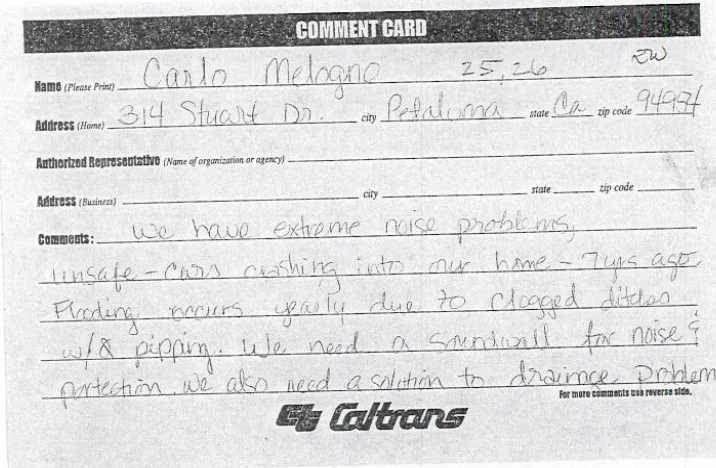 COMMENT CARD
Name (Please Print) Carlo Melogno 25,26 ZW
Address (Home) 314 Stuart Dr. city Petaluma state Ca zip code 94954
Authorized Representative (Name of organization or agency)
Address (Business) city state zip code
Comments: we have extreme noise problems,
unsafe - cars crashing into our home - 7 yrs ago.
Flooding occurs yearly due to clogged ditches
w/ pipping. We need a soundwall for noise &
portection we also need a solution to drainage problem
For more comments use reverse side.
Caltrans